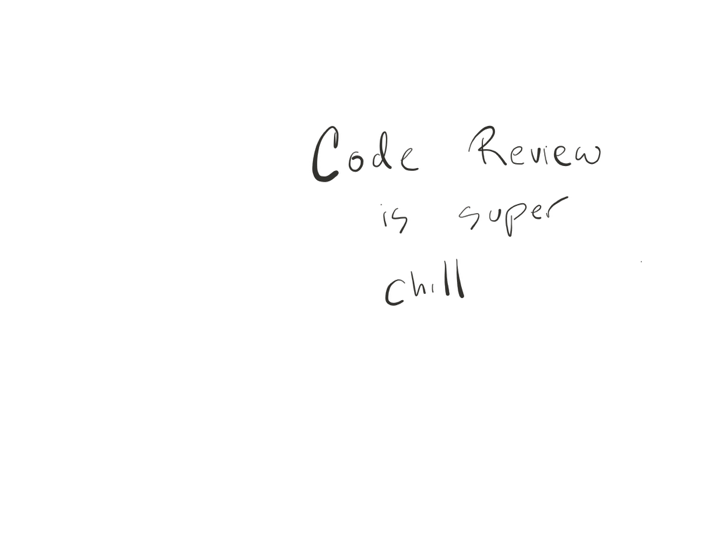 Code Review
is super
chill